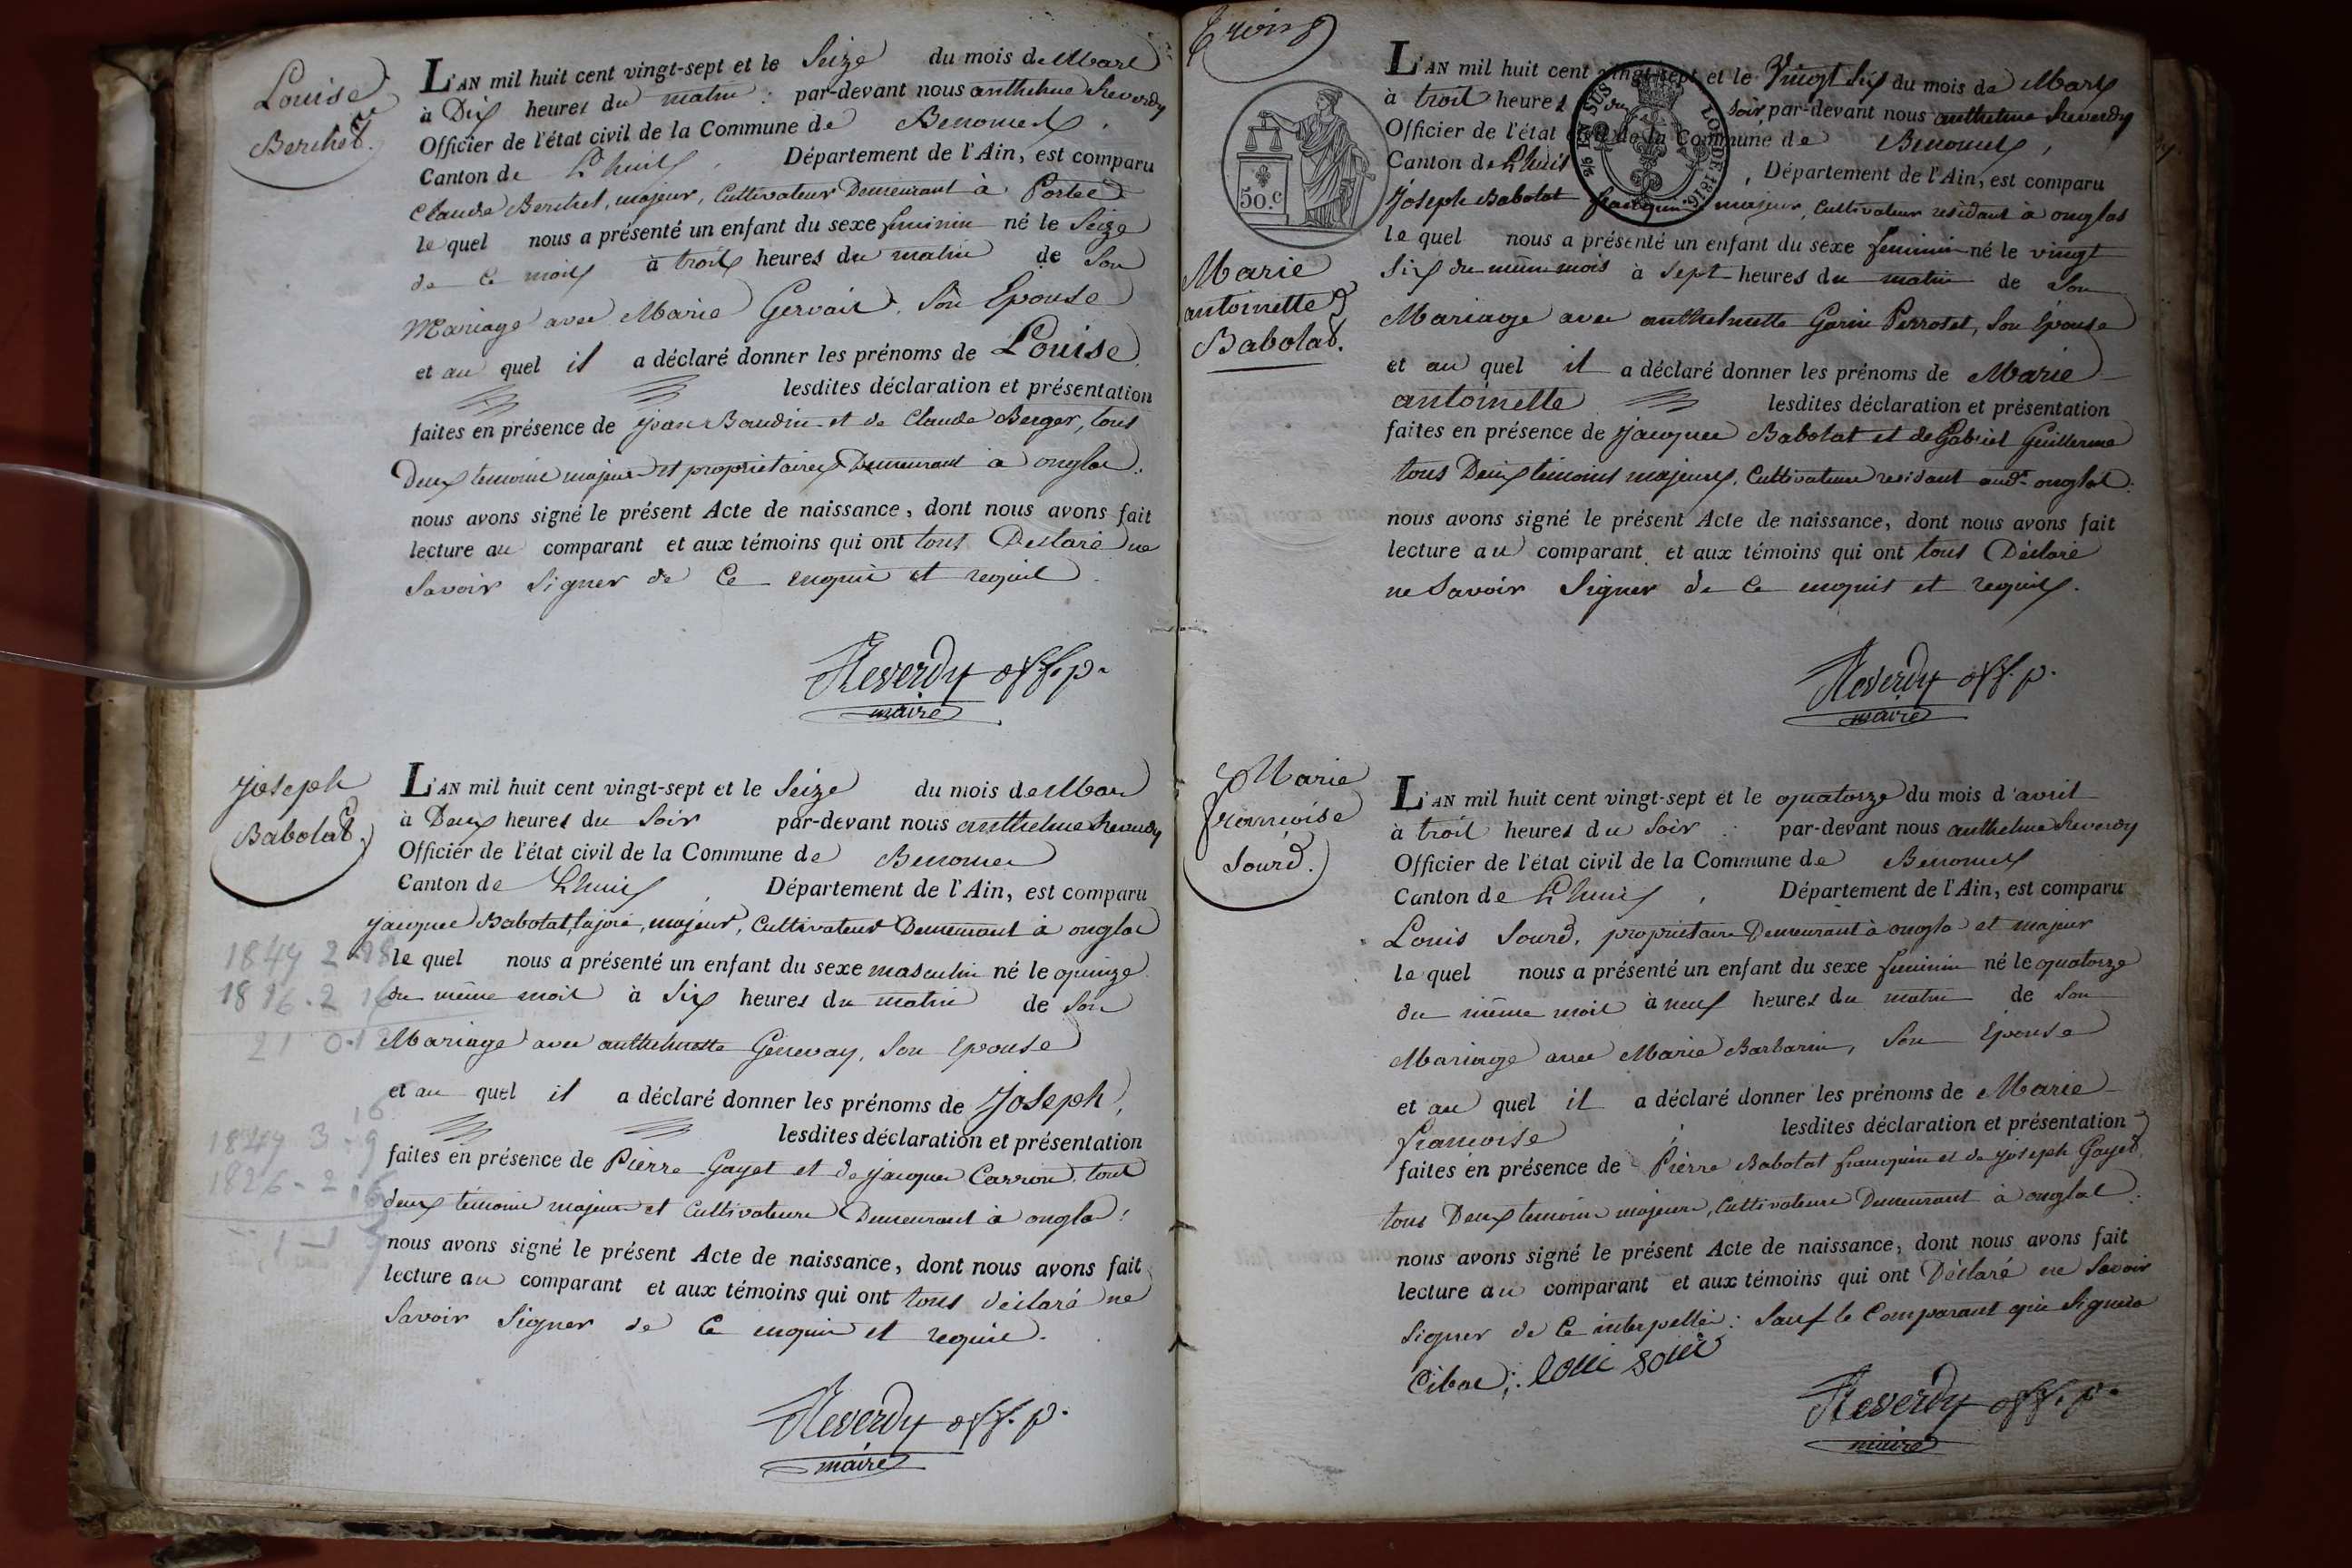 Louise
Berchet.
L'AN mil huit cent vingt-sept et le Seize du mois de Mars
à Dix heures du matin : par-devant nous anthelme Reverdy
Officier de l'état civil de la Commune de Benonces,
Canton de Lhuis, Département de l'Ain, est comparu
Claude Berchet, majeur, Cultivateur Demeurant à Portes
le quel nous a présenté un enfant du sexe feminin né le Seize
de ce mois à trois heures du matin de Son
Mariage avec Marie Gervais, Son Epouse
et au quel il a déclaré donner les prénoms de Louise
lesdites déclaration et présentation
faites en présence de jean Baudin et de Claude Berger, tous
Deux temoins majeurs et proprietaires Demeurant a onglas.
nous avons signé le présent Acte de naissance, dont nous avons fait
lecture au comparant et aux témoins qui ont tous Déclaré ne
Savoir Signer de Ce enquis et requis.
Reverdy off. p.
maire
Joseph
Babolat.
L'AN mil huit cent vingt-sept et le Seize du mois de Mars
à Deux heures du Soir par-devant nous anthelme Reverdy
Officier de l'état civil de la Commune de Benonces
Canton de Lhuis, Département de l'Ain, est comparu
jacques Babolat, lajoie, majeur, Cultivateur Demeurant à onglas
le quel nous a présenté un enfant du sexe masculin né le quinze
du même mois à Six heures du matin de Son
Mariage avec anthelmette Genevay, Son Epouse
et au quel il a déclaré donner les prénoms de Joseph,
lesdites déclaration et présentation
faites en présence de Pierre Gayet et de jacques Carrion, tous
deux témoins majeurs et Cultivateurs Demeurant à onglas.
nous avons signé le présent Acte de naissance, dont nous avons fait
lecture au comparant et aux témoins qui ont tous déclaré ne
Savoir Signer de Ce enquis et requis.
Reverdy off. p.
maire
50.c
EN SUS
LOI DE 1816.
Marie
antoinette
Babolat.
L'AN mil huit cent vingt-sept et le Vingt Six du mois de Mars
à trois heures du Soir, par-devant nous anthelme Reverdy
Officier de l'état civil de la Commune de Benonces,
Canton de Lhuis, Département de l'Ain, est comparu
Joseph Babolat françquin majeur, Cultivateur residant à onglas
le quel nous a présenté un enfant du sexe feminin né le vingt
Six du même mois à Sept heures du matin de Son
Mariage avec anthelmette Garin Perrotet, Son Epouse
et au quel il a déclaré donner les prénoms de Marie
antoinette lesdites déclaration et présentation
faites en présence de Jacques Babolat et de Gabriel Guillerme
tous Deux témoins majeurs, Cultivateurs residant aud. onglas.
nous avons signé le présent Acte de naissance, dont nous avons fait
lecture au comparant et aux témoins qui ont tous Déclaré
ne Savoir Signer de Ce enquis et requis.
Reverdy off. p.
maire
Marie
françoise
Sourd.
L'AN mil huit cent vingt-sept et le quatorze du mois d'avril
à trois heures du Soir : par-devant nous anthelme Reverdy
Officier de l'état civil de la Commune de Benonces
Canton de Lhuis, Département de l'Ain, est comparu
Louis Sourd, proprietaire Demeurant à onglas et majeur
le quel nous a présenté un enfant du sexe feminin né le quatorze
du même mois à neuf heures du matin de Son
Mariage avec Marie Barbarin, Son Epouse
et au quel il a déclaré donner les prénoms de Marie
françoise ; lesdites déclaration et présentation
faites en présence de Pierre Babolat françquin et de joseph Gayet,
tous Deux temoins majeurs, Cultivateurs Demeurant à onglas.
nous avons signé le présent Acte de naissance, dont nous avons fait
lecture au comparant et aux témoins qui ont Déclaré ne Savoir
Signer de Ce interpellés : Sauf le Comparant qui Signera
Cibas ;
Reverdy off. p.
maire